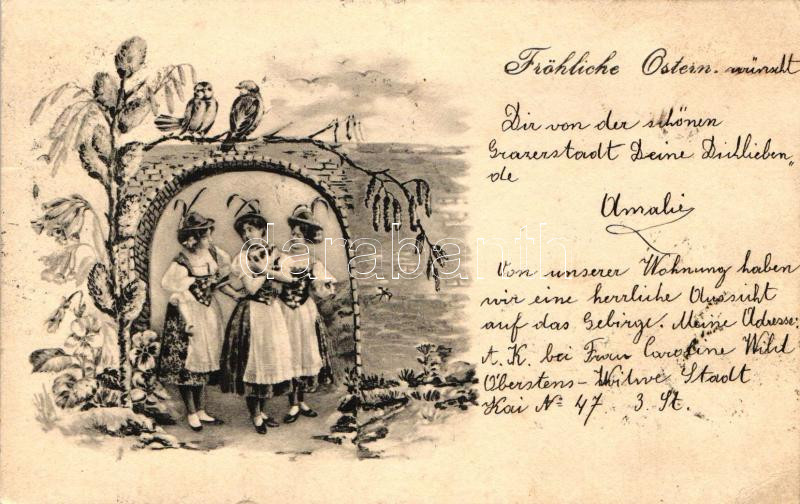 Fröhliche Ostern. wünscht
Dir von der schönen
Grazerstadt Deine Dichlieben„
de
Amalie
Von unserer Wohnung haben
wir eine herrliche Aussicht
auf das Gebirge. Meine Adresse:
A. K. bei Frau Caroline Wild
Oberstens-Witwe Stadt
Kai No 47 3. St.
darabanth